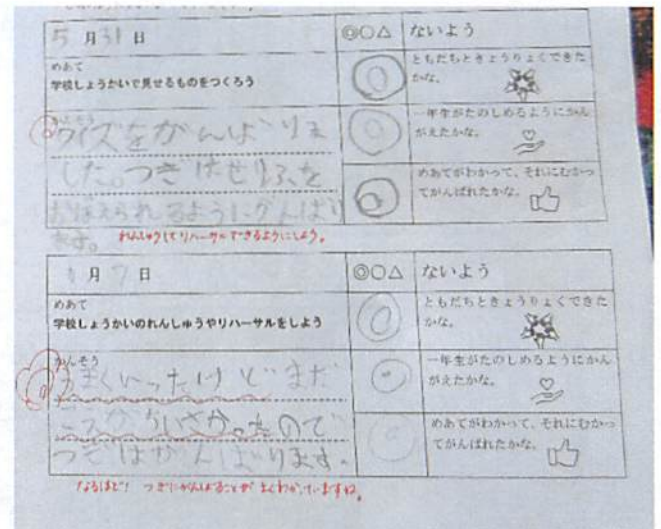 5月31日
◎○△
ないよう
めあて
学校しょうかいで見せるものをつくろう
ともだちときょうりょくできた
かな。
かんそう
クイズをがんばりま
した。つぎはせりふを
おぼえられるようにがんばり
ます。
一年生がたのしめるようにかん
がえたかな。
めあてがわかって、それにむかっ
てがんばれたかな。
れんしゅうしてリハーサルできるようにしよう。
月7日
◎○△
ないよう
めあて
学校しょうかいのれんしゅうやリハーサルをしよう
ともだちときょうりょくできた
かな。
かんそう
うまくいったけどまだ
こえがちいさかったので
つぎはがんばります。
一年生がたのしめるようにかん
がえたかな。
めあてがわかって、それにむかっ
てがんばれたかな。
なるほど! つぎにがんばることがよくわかっていますね。